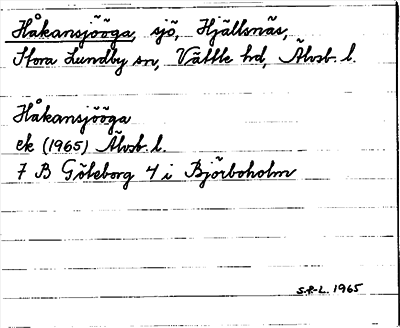 Håkansjööga, sjö, Hjällsnäs,
Stora Lundby sn, Vättle hd, Älvsb. l.
Håkansjööga
ek (1965) Älvsb. l.
7 B Göteborg 4 i Björboholm
S.R-L. 1965